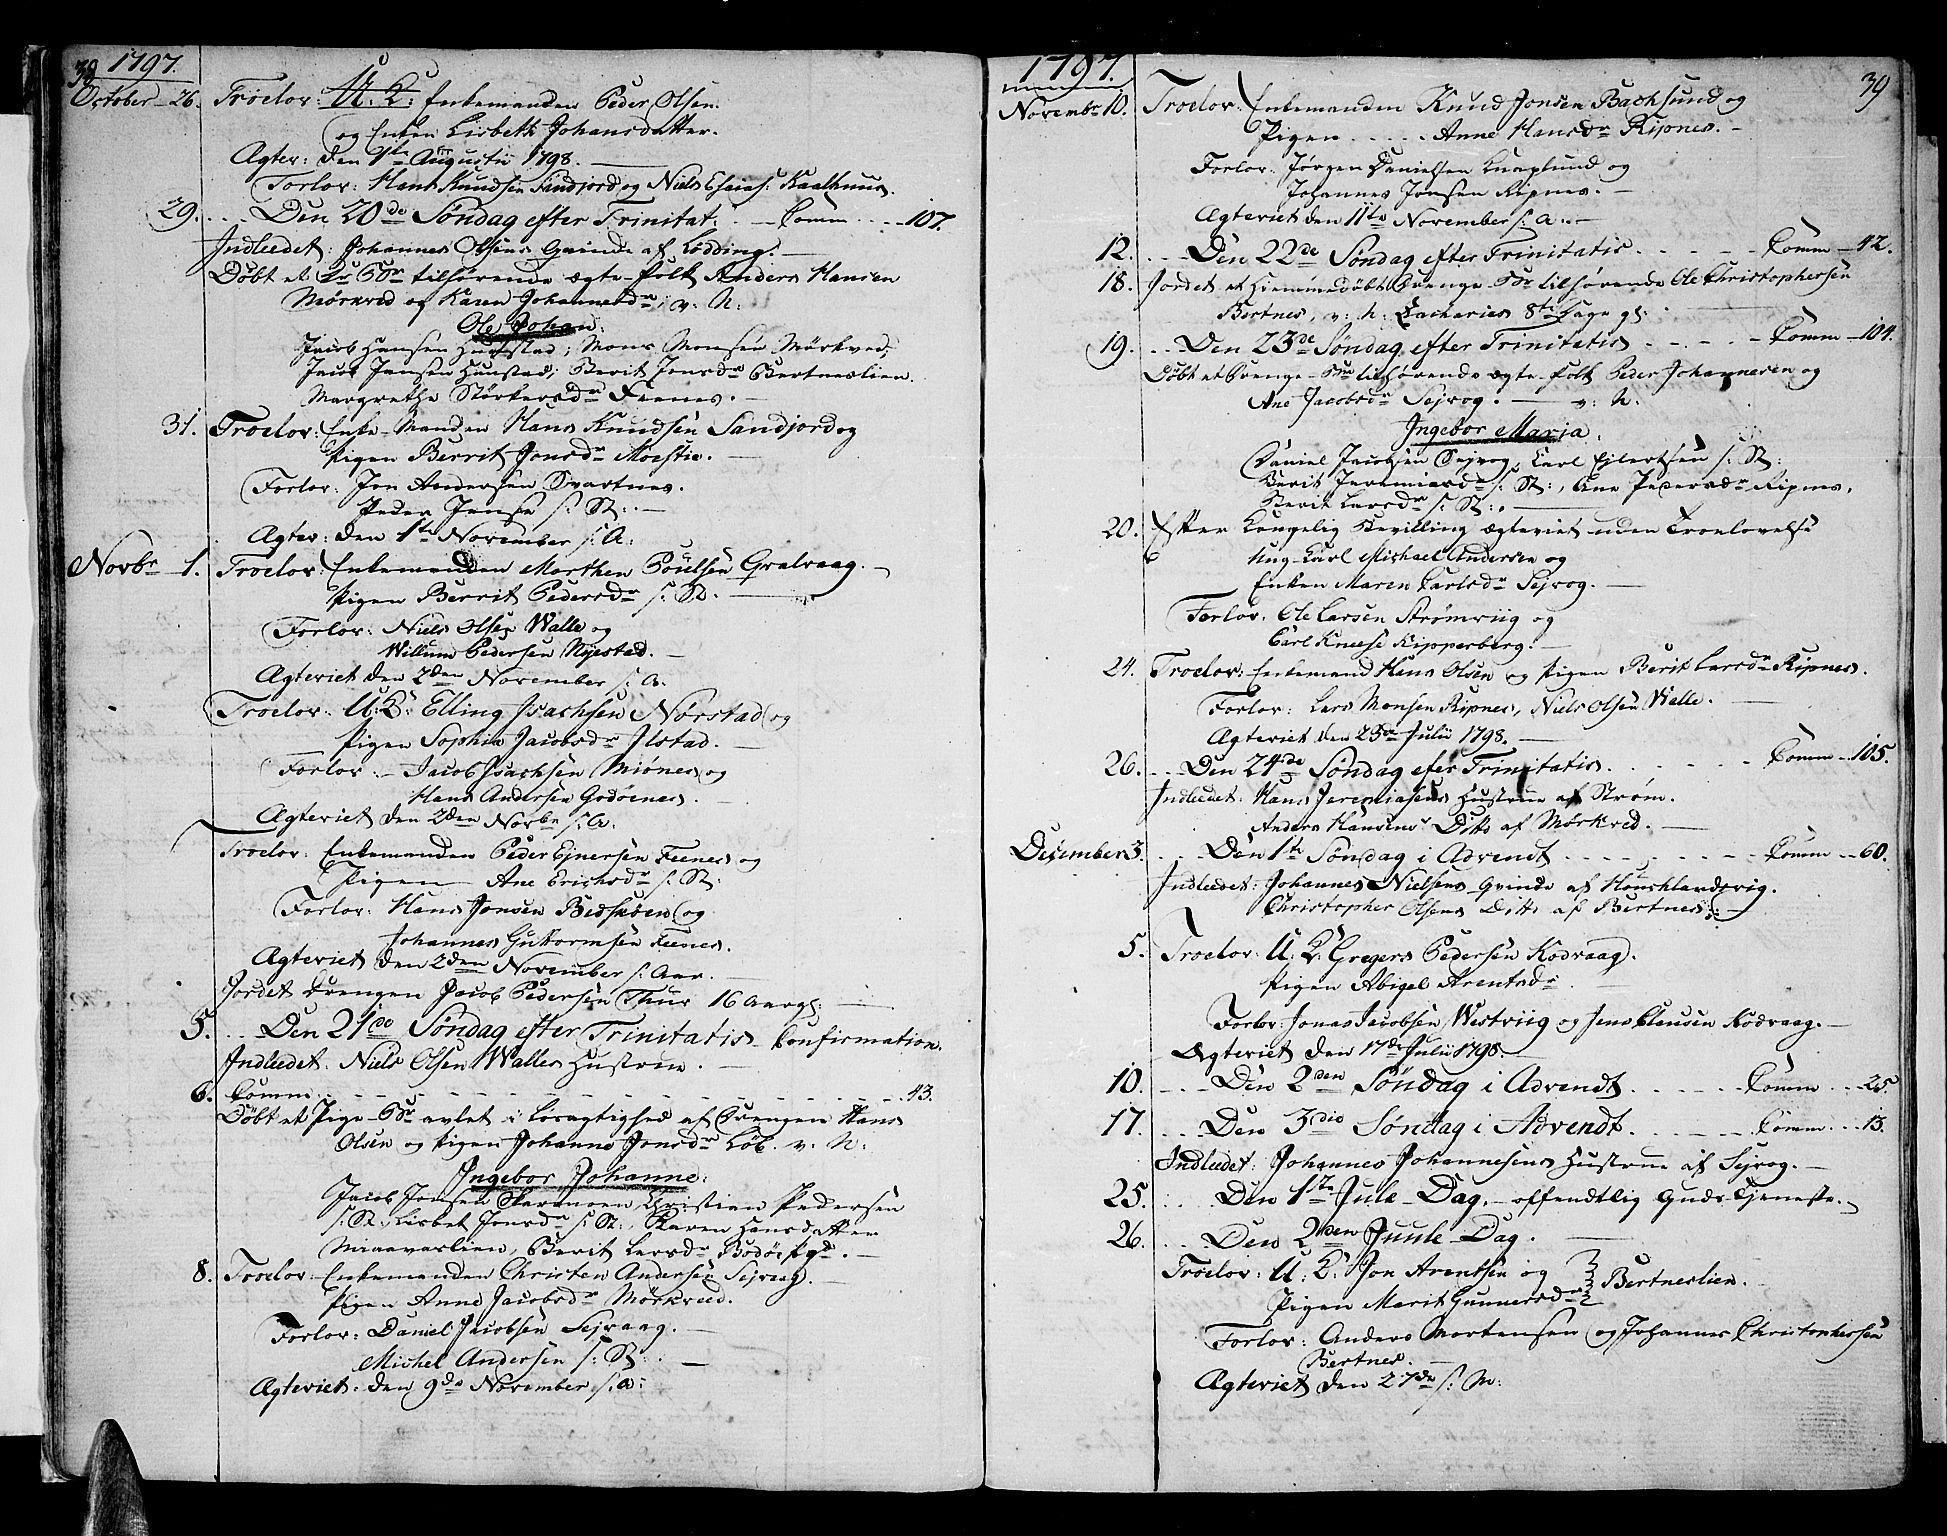 38 1797.
October 26. Troelov: U: K: Enkemanden Peder Olsen
og Enken Lisbeth Johansdatter.
Ægter: den 1te Augustii 1798.
Forlov: Hans Knudsen Sandjord og Niels Esaias: Kaalhuus.
29. Den 20de Søndag efter Trinitat: Comm 107.
Indleedet: Johannes Olsens Qvinde af Lødding.
Døbt et Br tilhørende ægte-folk Anders Hansen
Mørkved og Karen Johannesdr, v. N:
Ole Johan:
Jacob Hansen Hunstad; Mons Monsen Mørkved;
Jacob Jensen Hunstad; Berit Jonsdr Bertneslien.
Margrethe Størkersdr Feenes.
31. Troelov: Enke-Manden Hans Knudsen Sandjord og
Pigen Berrit Jonsdr Moestie.
Forlov: Jon Andersen Svartnes.
Peder Jensen s: St:
Ægter: den 1te November s: A:
Novbr 1. Troelov: Enkemanden Morthen Poulsen Gralvaag.
Pigen Berrit Pedersdr s: St.
Forlov: Niels Olsen Walle og
Willum Pedersen Nyestad.
Ægteviet den 2den November s: a.
Troelov: U: K: Elling Isachsen Nørstad og
Pigen Sophia Jacobsdr Ilstad.
Forlov: Jacob Isachsen Miønes og
Hans Andersen Godøenes.
Ægteviet den 2den Novbr s: A:
Troelov: Enkemanden Peder Ejnersen Feenes og
Pigen Ane Erichsdr s: St:
Forlov: Hans Jonsen Bedskoen og
Johannes Guttormsen Feenes.
Ægteviet den 2den November s: Aar.
Jordet Drengen Jacob Pedersen Thuv 16 Aar gl:
5. Den 21de Søndag efter Trinitatis Confirmation.
Indleedet: Niels Olsen Walles Hustrue.
6. Comm: 43.
Døbt et Pige-Br avlet i Løsagtighed af Drengen Hans
Olsen og Pigen Johanne Jonsdr Løb. v: N:
Ingebor Johanne:
Jacob Jonsen Christian Pedersen
s: St: Lisbet Jonsdr s: St:, Karen Hansdatter
Miaavaslien, Berit Larsdr Bodøe Pgd.
8. Troelov: Enkemanden Christen Andersen Sejvaag.
Pigen Anne Jacobsdr Mørkveed.
Forlov: Daniel Jacobsen Sejvaag.
Michel Andersen s: St:
Ægteviet: den 9de November s: a:
1797. 39
Novembr 10. Troelov: Enkemanden Knud Jonsen Bachsund og
Pigen Anne Hansdr Ripnes.
Forlov: Jørgen Danielsen Knaplund og
Johannes Jonsen Ripnes.
Ægteviet den 11te November s: a:
12. Den 22de Søndag efter Trinitatis Comm 42.
18. Jordet et Hiemmedøbt Drenge-Br tilhørende Ole Christophersen
Bertnes, v. N: Zacharias 8te Dage gl:
19. Den 23de Søndag efter Trinitatis Comm 104.
Døbt et Drenge-Br tilhørende ægte-folk Peder Johannesen og
Ane Jacobsdr Sejvog. v: N:
Ingebor Maria.
Daniel Jacobsen Sejvog, Carl Ejlertsen s: St:
Berit Jeremiasdr s: St:, Ane Pedersdr Ripnes,
Berit Larsdr s: St:.
20. Efter Kongelig Bevilling ægteviet uden Troelovelse
Ung-Karl Michael Andersen og
Enken Maren Carlsdr Sejvog.
Forlov: Ole Larsen Strømviig og
Carl Kneese Kipperberg.
24. Troelov: Enkemand Hans Olsen og Pigen Berit Larsdr Ripnes.
Forlov: Lars Monsen Ripnes, Niels Olsen Walle.
Ægteviet den 23de Julii 1798.
26. Den 24de Søndag efter Trinitatis. Comm 105.
Indleedet: Hans Jeremiasens Hustrue af Strøm.
Anders Hansens Ditto af Mørkved.
December 3. Den 1te Søndag i Advendt Comm 60.
Indleedet: Johannes Nielsens Qvinde af Hunsklardevig.
Christopher Olsens Ditto af Bertnes.
5. Troelov: U: K: Gregers Pedersen Kodvaag.
Pigen Abigel Arentsdr
Forlov: Jonas Jacobsen Westviig og Jens Clausen Kodvaag.
Ægteviet den 17de Julii 1798.
10. Den 2den Søndag i Advendt Comm 25.
17. Den 3die Søndag i Advendt. Comm 13.
Indleedet: Johannes Johannesens Hustrue af Sejvog.
25. Den 1ste Jule-Dag. offendtlig Guds Tjeneste.
26. Den 2den Juule-Dag.
Troelov: U: K: Jon Arentsen og
Pigen Marit Gunnersdr Bertneslien.
Forlov: Anders Mortensen og Johannes Christophersen
Bertnes.
Ægteviet den 27de s: M: